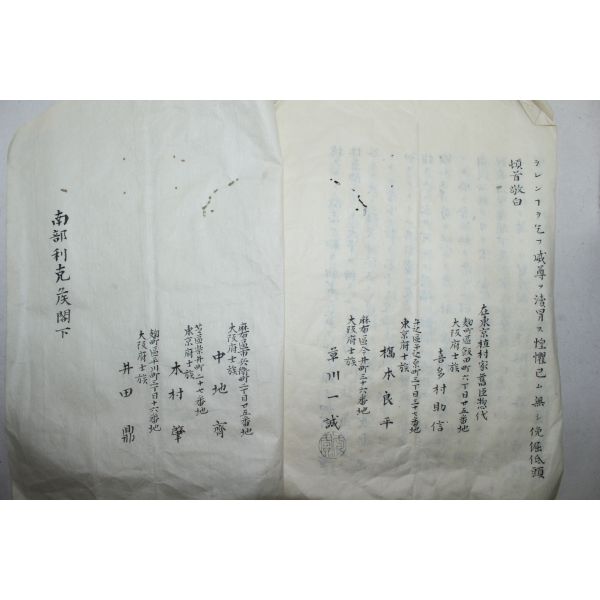 ラレンヿヲ乞フ威尊ヲ瀆冒ス惶懼已ム無シ俛偃低頭
頓首敬白
在東京植村家舊臣惣代
麹町區飯田町六丁目廿五番地
大阪府士族
喜多村助信
牛込區牛込泉町三丁目三十七番地
東京府士族
橋本良平
麻布區今井町三十六番地
大阪府士族
草川一誠
麻布區市兵衛町二丁目廿五番地
大阪府士族
中地齊
芝區柴井町二十七番地
東京府士族
木村肇
麹町區平川町二丁目十六番地
大阪府士族
井田鼎
南部利克殿閣下